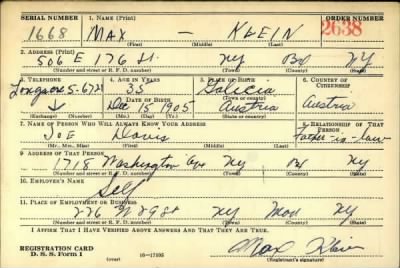 SERIAL NUMBER 1. NAME (Print) ORDER NUMBER
1668 MAX — KLEIN 2638
(First) (Middle) (Last)
2. ADDRESS (Print)
506 E 176 St. NY Bx NY
(Number and street or R. F. D. number) (Town) (County) (State)
3. TELEPHONE 4. AGE IN YEARS 5. PLACE OF BIRTH 6. COUNTRY OF CITIZENSHIP
35 Galicia
DATE OF BIRTH (Town or county)
Dec 15 1905 Austria Austria
(Exchange) (Number) (Mo.) (Day) (Yr.) (State or country)
7. NAME OF PERSON WHO WILL ALWAYS KNOW YOUR ADDRESS 8. RELATIONSHIP OF THAT PERSON
JOE Davis Father-in-law
(Mr., Mrs., Miss) (First) (Middle) (Last)
9. ADDRESS OF THAT PERSON
1718 Washington Ave NY Bx NY
(Number and street or R. F. D. number) (Town) (County) (State)
10. EMPLOYER'S NAME
Self
11. PLACE OF EMPLOYMENT OR BUSINESS
226 W 29 St NY Man NY
(Number and street or R. F. D. number) (Town) (County) (State)
I AFFIRM THAT I HAVE VERIFIED ABOVE ANSWERS AND THAT THEY ARE TRUE.
REGISTRATION CARD
D. S. S. Form 1 16—17105 Max Klein
(Registrant's signature)